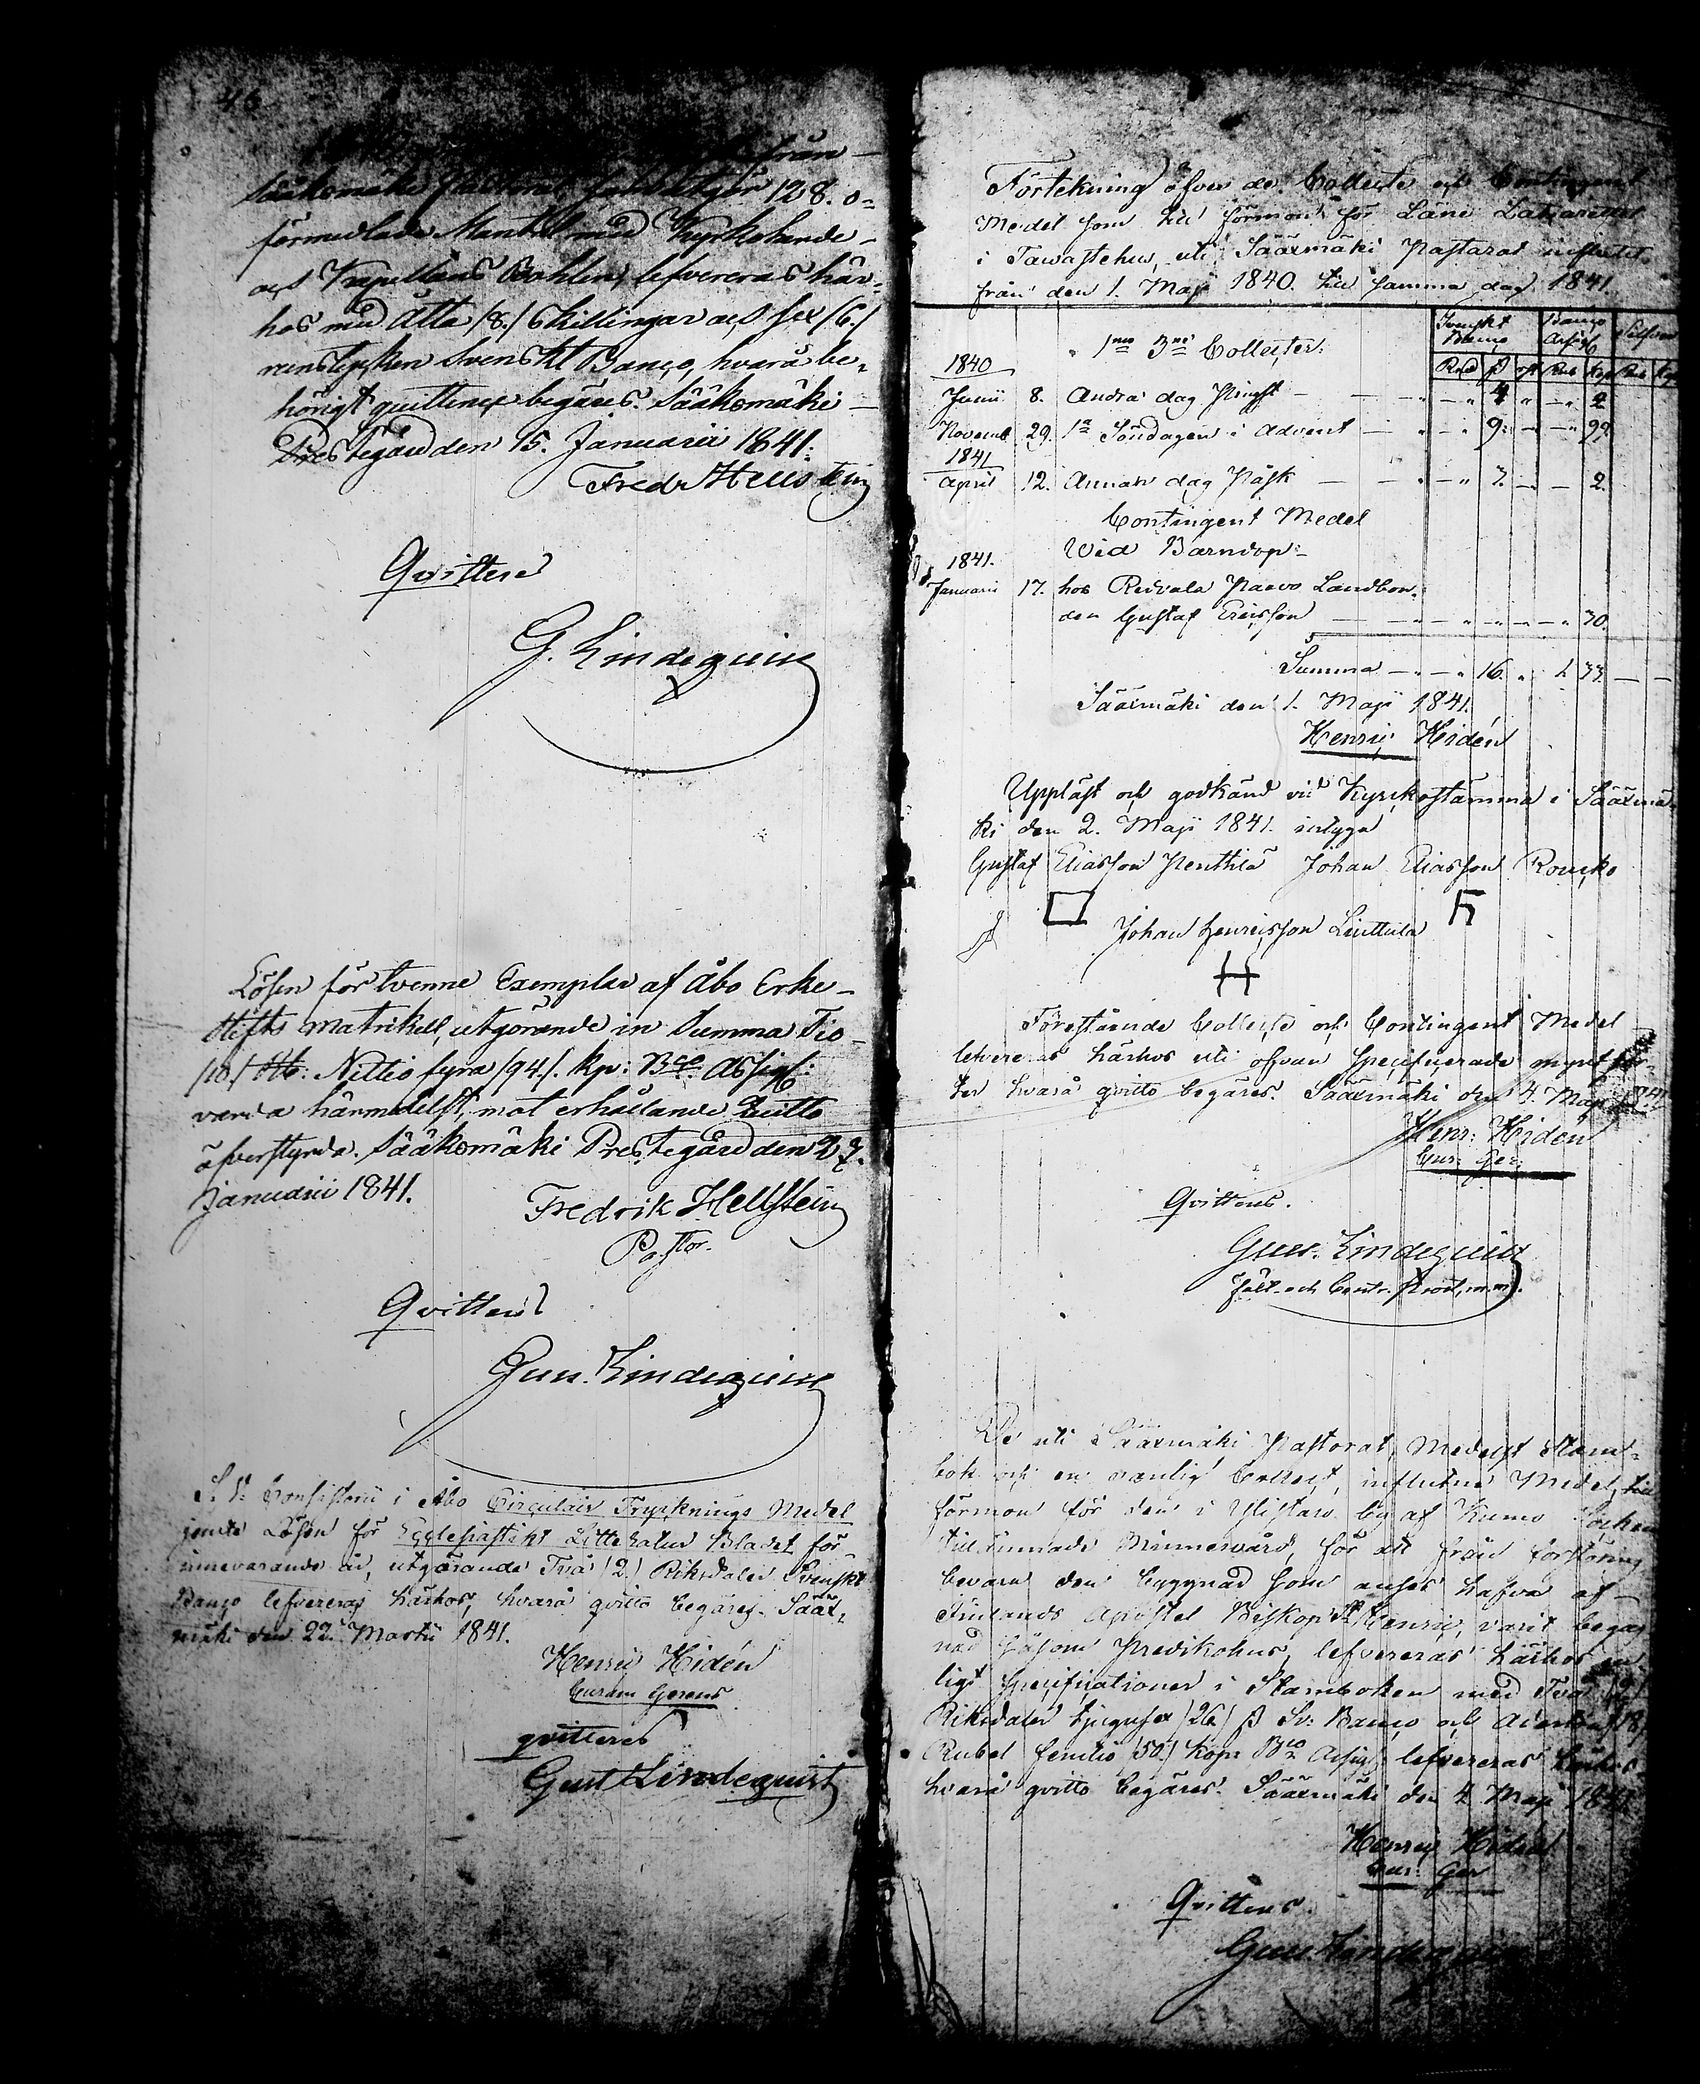 46
från
Sääksmäki 128. o-
förmedlade Mantal med Kyrkoherde-
och Kapellans Bohlen, lefvereras här-
hos med Åtta /8./ Skillingar och sex /6./
runstycken Svenskt Banco, hvarå be-
hörigt quittence begäres. Sääksmäki
Prestegård den 15. Januarii 1841.
Fredr Hellstein
Qvittens
G. Lindequist
Lösen för tvenne Exemplar af Åbo Erke-
Stifts Matrikel, utgörande in Summa Tio
/10./ Rb: Nittio fyra /94/. kp: Bco. Assign:
varda härmedelst, mot erhållande Quitto
öfverstyrda. Sääksmäki Prestegård den 27.
Januarii 1841.
Fredrik Hellstein
Pastor.
Qvittens
Gust. Lindequist
S. V. Consistorii i Åbo Circulair Trycknings Medel
jemte Lösen för Ecclesiastikt Litteratur Bladet för
innevarande år, utgörande Två /2./ Riksdaler Svenskt
Banco lefvereras härhos, hvarå qvitto begäres. Sääx-
mäki den 22. Martii 1841.
Henric Hidén
Curam Gerens
qvitteras
Gust Lindequist
Förtekning öfver de Collecte och Contingent
Medel som till förmon för Läne Lazarettet
i Tawastehus, uti Sääxmäki Pastorat influtit
från den 1. Maji 1840. till samma dag 1841.
Svenskt Banco Silfver
1mo 3ne Collecter: Banco Assign
1840 Rd ß rst Rub Kop Rub Kop
Junii 8. Andra dag Pingst 4 2
Novemb 29. 1a Söndagen i Advent 9. 99
1841
April 12. Annan dag Påsk 3. 2.
Contingent Medel
Wid Barndop
1841.
Januarii 17. hos Redvala Paavo Landbon-
den Gustaf Ericsson 30.
Summa 16. 1 33.
Sääxmäki den 1. Maji 1841.
Henric Hidén
Uppläst och godkänd vid Kyrckostämma i Sääxmä-
ki den 2. Maji 1841. intyga
Gustaf Eliasson Penttilä Johan Eliasson Roucko
Johan Henricsson Liuttula
Förestående Collecte och Contingent Medel
lefvereras härhos uti ofvan specificerade mynt sor-
ter hvarå qvitto begäres. Sääxmäki den 4. Maji 1841.
Henr: Hidén
Cur: Ger:
Qvittens.
Gust. Lindequist
De uti Sääxmäki Pastorat, Medelst Stam-
bok och en vanlig Collect, influtne Medel, till
förmon för den i Ylistaro by af Kumo Socken
tillämnade Minnesvård, för att från förstöring
bevara den byggnad som anses hafva af
Finlands Apostel Biskop St Henric, varit begag-
nad såsom Predikohus, lefvereras härhos en-
ligt Specificationer i Stamboken med Två /2/
Riksdaler tjugusex /26/ ß Sv: Banco och Aderton /18/
Rubel femtio /50./ Kop: Bco Assign: lefvereras härhos
hvarå qvitto begäres. Sääxmäki den 4 Maji 1841
Henric Hidén
Cur: Ger
Qvittens.
Gust. Lindequist